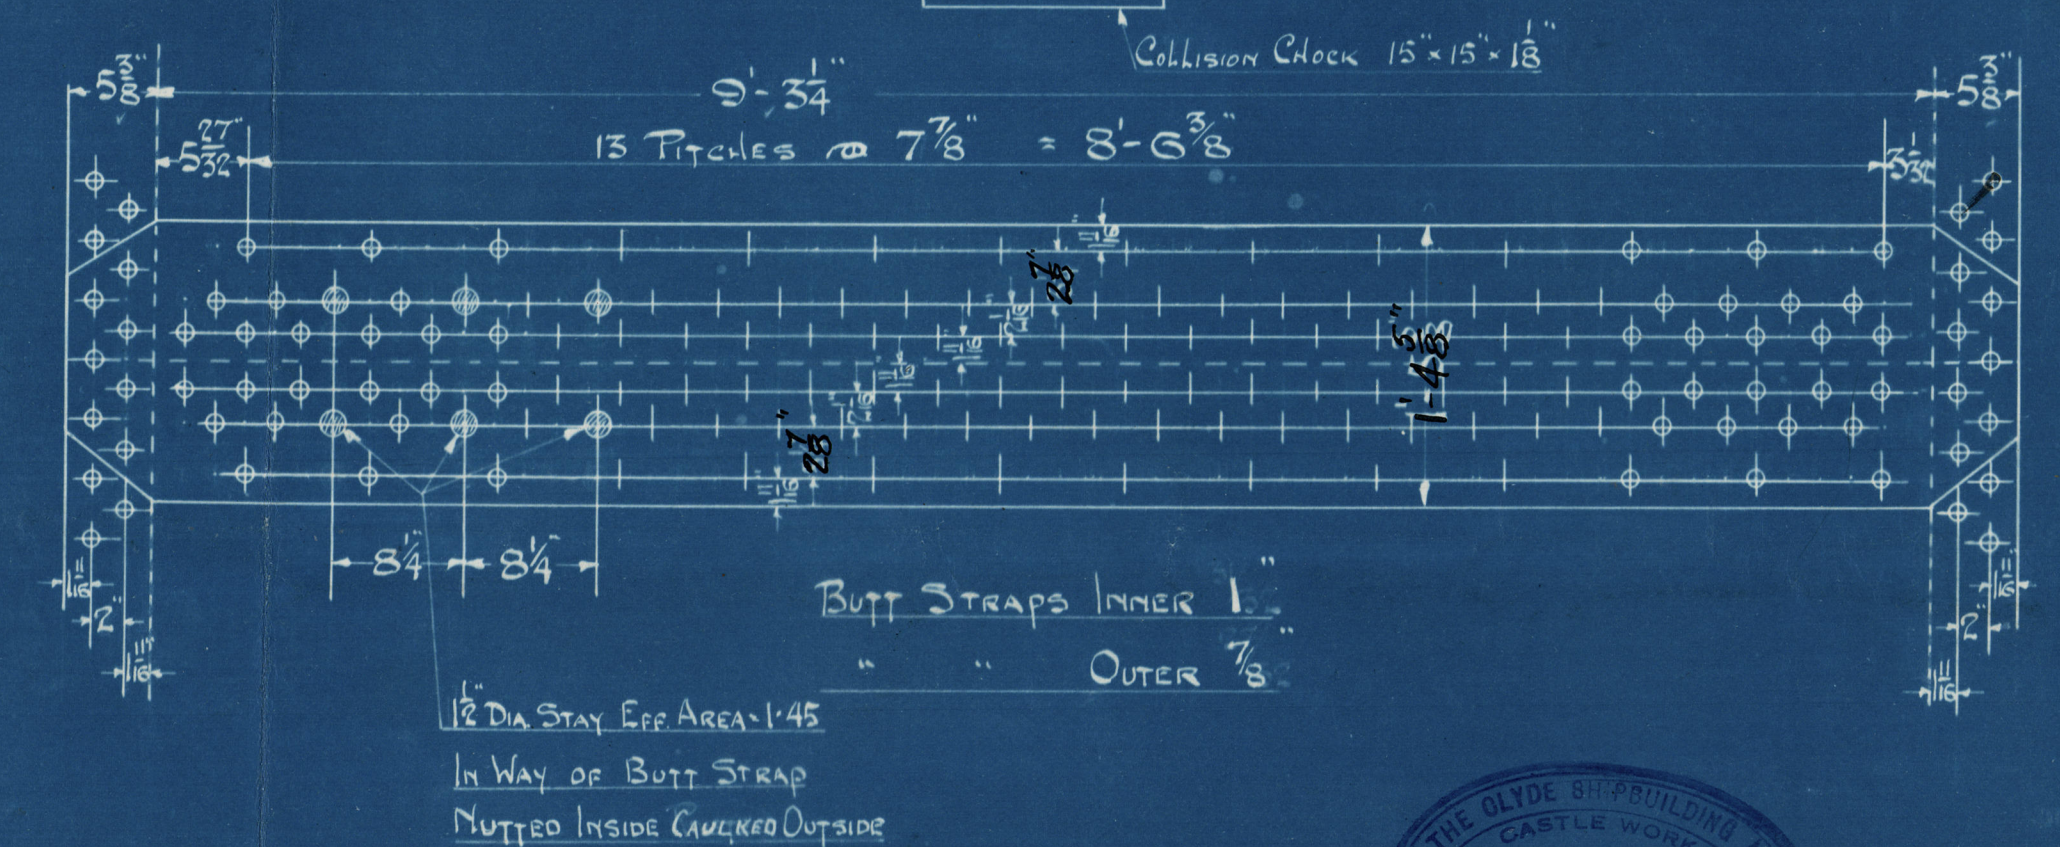 COLLISION CHOCK 15" × 15" × 1 1/8"
5 3/8"
9'- 3 1/4"
5 3/8"
13 PITCHES @ 7 7/8" = 8'- 6 3/8"
5 27/32"
3 1/32
1 11/16"
2 7/8"
2 1/16"
1 11/16"
1'-4 5/8"
1 11/16"
2 1/16"
2 7/8"
1 11/16"
8 1/4"
8 1/4"
1 11/16
2"
1 11/16"
1 11/16"
2"
1 11/16
BUTT STRAPS INNER 1"
" " OUTER 7/8"
1 1/2" DIA. STAY EFF. AREA = 1.45
IN WAY OF BUTT STRAP
NUTTED INSIDE CAULKED OUTSIDE
THE CLYDE SHIPBUILDING
CASTLE WORK